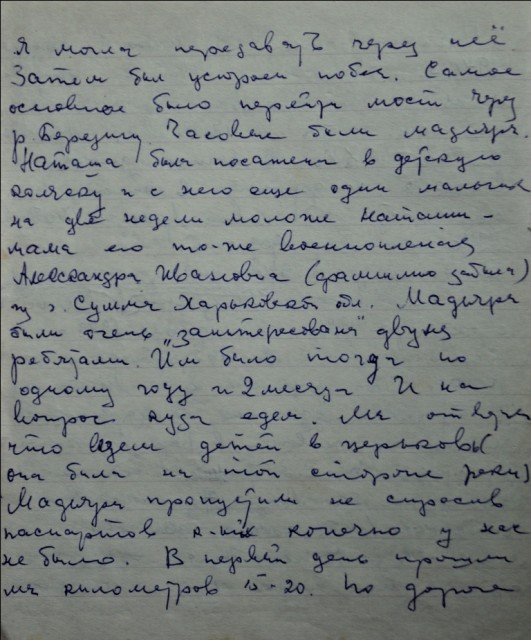 Я могла передавать через неё
Затем был устроен побег. Самое
основное было перейти мост через
р. Березину. Часовые были мадьяры.
Наташа была посажена в детскую
коляску и с ней еще один мальчик
на две недели моложе Наташи –
мама его то-же военнопленная
Александра Ивановна (фамилию забыла)
из г. Суммы Харьковской обл. Мадьяры
были очень „заинтересованы" двумя
ребятами. Им было тогда по
одному году и 2 месяца И на
вопрос куда едем. Мы ответили
что везем детей в церьковь (
она была на той стороне реки)
Мадьяры пропустили не спросив
паспартов к-ых конечно у нас
не было. В первый день прошли
мы километров 15-20. По дороге